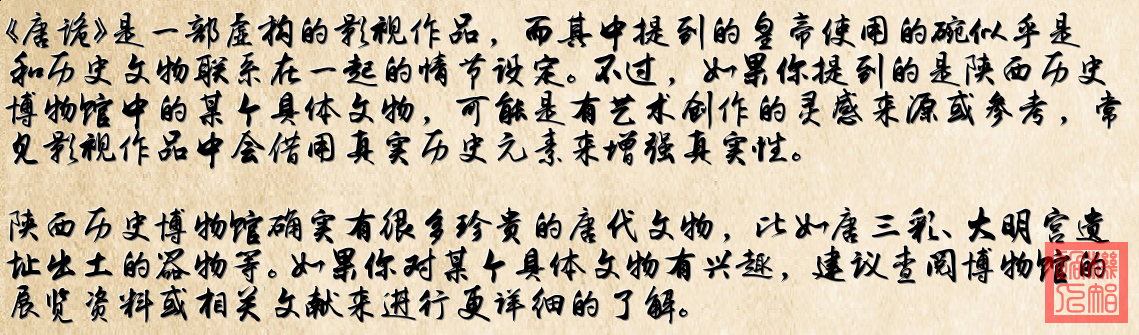 《唐诡》是一部虚构的影视作品，而其中提到的皇帝使用的碗似乎是
和历史文物联系在一起的情节设定。不过，如果你提到的是陕西历史
博物馆中的某个具体文物，可能是有艺术创作的灵感来源或参考，常
见影视作品中会借用真实历史元素来增强真实性。
陕西历史博物馆确实有很多珍贵的唐代文物，比如唐三彩、大明宫遗
址出土的器物等。如果你对某个具体文物有兴趣，建议查阅博物馆的
展览资料或相关文献来进行更详细的了解。